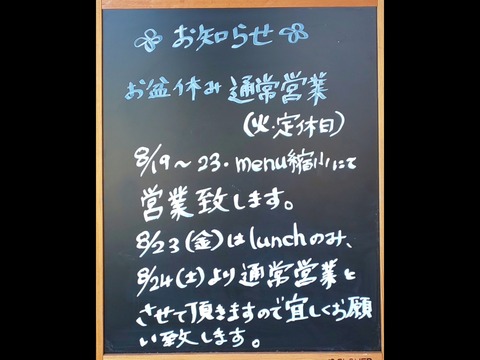 お知らせ
お盆休み 通常営業
(火・定休日)
8/19～23・menu縮小にて
営業致します。
8/23(金)はlunchのみ、
8/24(土)より通常営業と
させて頂きますので宜しくお願
い致します。